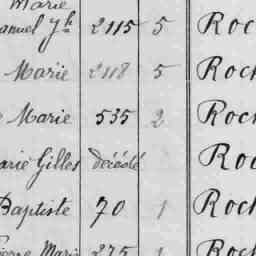 Marie
anuel Jh 2115 5 Roc
Marie 2118 5 Rock
Marie 535 2 Rock
arie Gilles décédé Roc
Baptiste 70 1 Rock
Pierre Marie 275 1 Rock